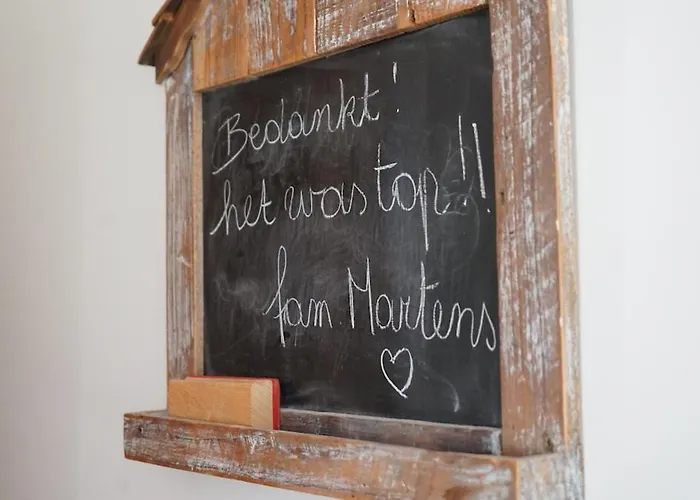 Bedankt!
het was top!!
fam. Martens
♡